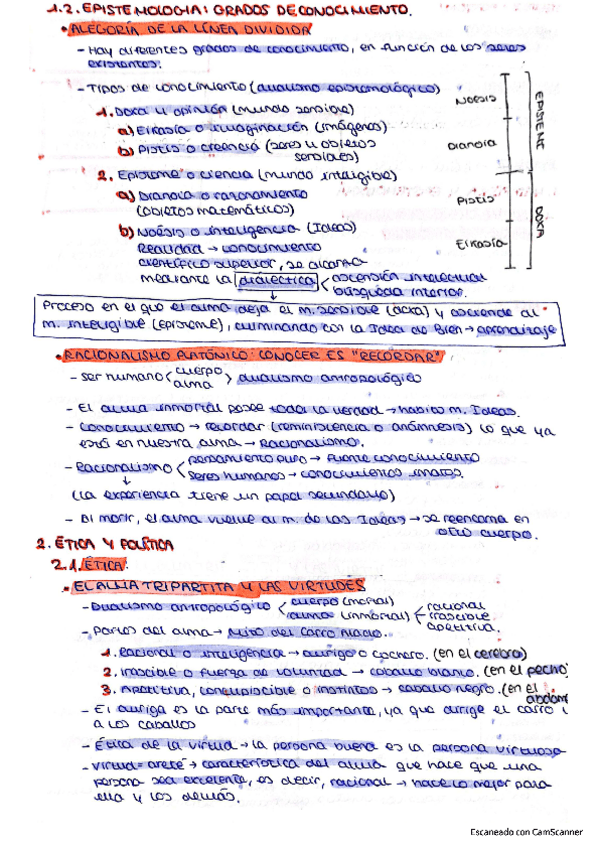 1.2. EPISTEMOLOGIA: GRADOS DE CONOCIMIENTO.
• ALEGORÍA DE LA LÍNEA DIVIDIDA
- Hay diferentes grados de conocimiento, en función de los seres
existentes.
- Tipos de conocimiento (dualismo epistemológico)
1. Doxa u opinión (mundo sensible)
a) Eikasía o imaginación (imágenes)
b) Pistis o creencia (seres u objetos
sensibles)
2. Episteme o ciencia (mundo inteligible)
a) Dianoia o razonamiento
(objetos matemáticos)
b) Noêsis o inteligencia (Ideas)
Realidad → conocimiento
científico superior, se alcanza
mediante la dialéctica < ascensión intelectual
búsqueda interior.
Noêsis
Dianoia
EPISTEME
Pistis
Eikasía
DOXA
Proceso en el que el alma deja el m. sensible (doxa) y asciende al
m. inteligible (episteme), culminando con la Idea de Bien → aprendizaje
• RACIONALISMO PLATÓNICO: CONOCER ES "RECORDAR"
- Ser humano < cuerpo
alma > dualismo antropológico
- El alma inmortal posee toda la verdad → habitó m. Ideas.
- Conocimiento → recordar (reminiscencia o anámnesis) lo que ya
está en nuestra alma → Racionalismo.
- Racionalismo < pensamiento puro → fuente conocimiento
seres humanos → conocimientos innatos.
(la experiencia tiene un papel secundario)
- Al morir, el alma vuelve al m. de las Ideas → se reencarna en
otro cuerpo.
2. ÉTICA Y POLÍTICA
2.1. ÉTICA.
• EL ALMA TRIPARTITA Y LAS VIRTUDES
- Dualismo antropológico < cuerpo (mortal)
alma (inmortal) < racional
irascible
apetitiva.
- Partes del alma → Mito del Carro Alado.
1. Racional o inteligencia → auriga o cochero. (en el cerebro)
2. Irascible o fuerza de voluntad → caballo blanco. (en el pecho)
3. Apetitiva, concupiscible o instintos → caballo negro. (en el
abdom
- El auriga es la parte más importante, ya que dirige el carro
a los caballos
- Ética de la virtud → la persona buena es la persona virtuosa
- Virtud = areté → característica del alma que hace que una
persona sea excelente, es decir, racional → hace lo mejor para
ella y los demás.
Escaneado con CamScanner